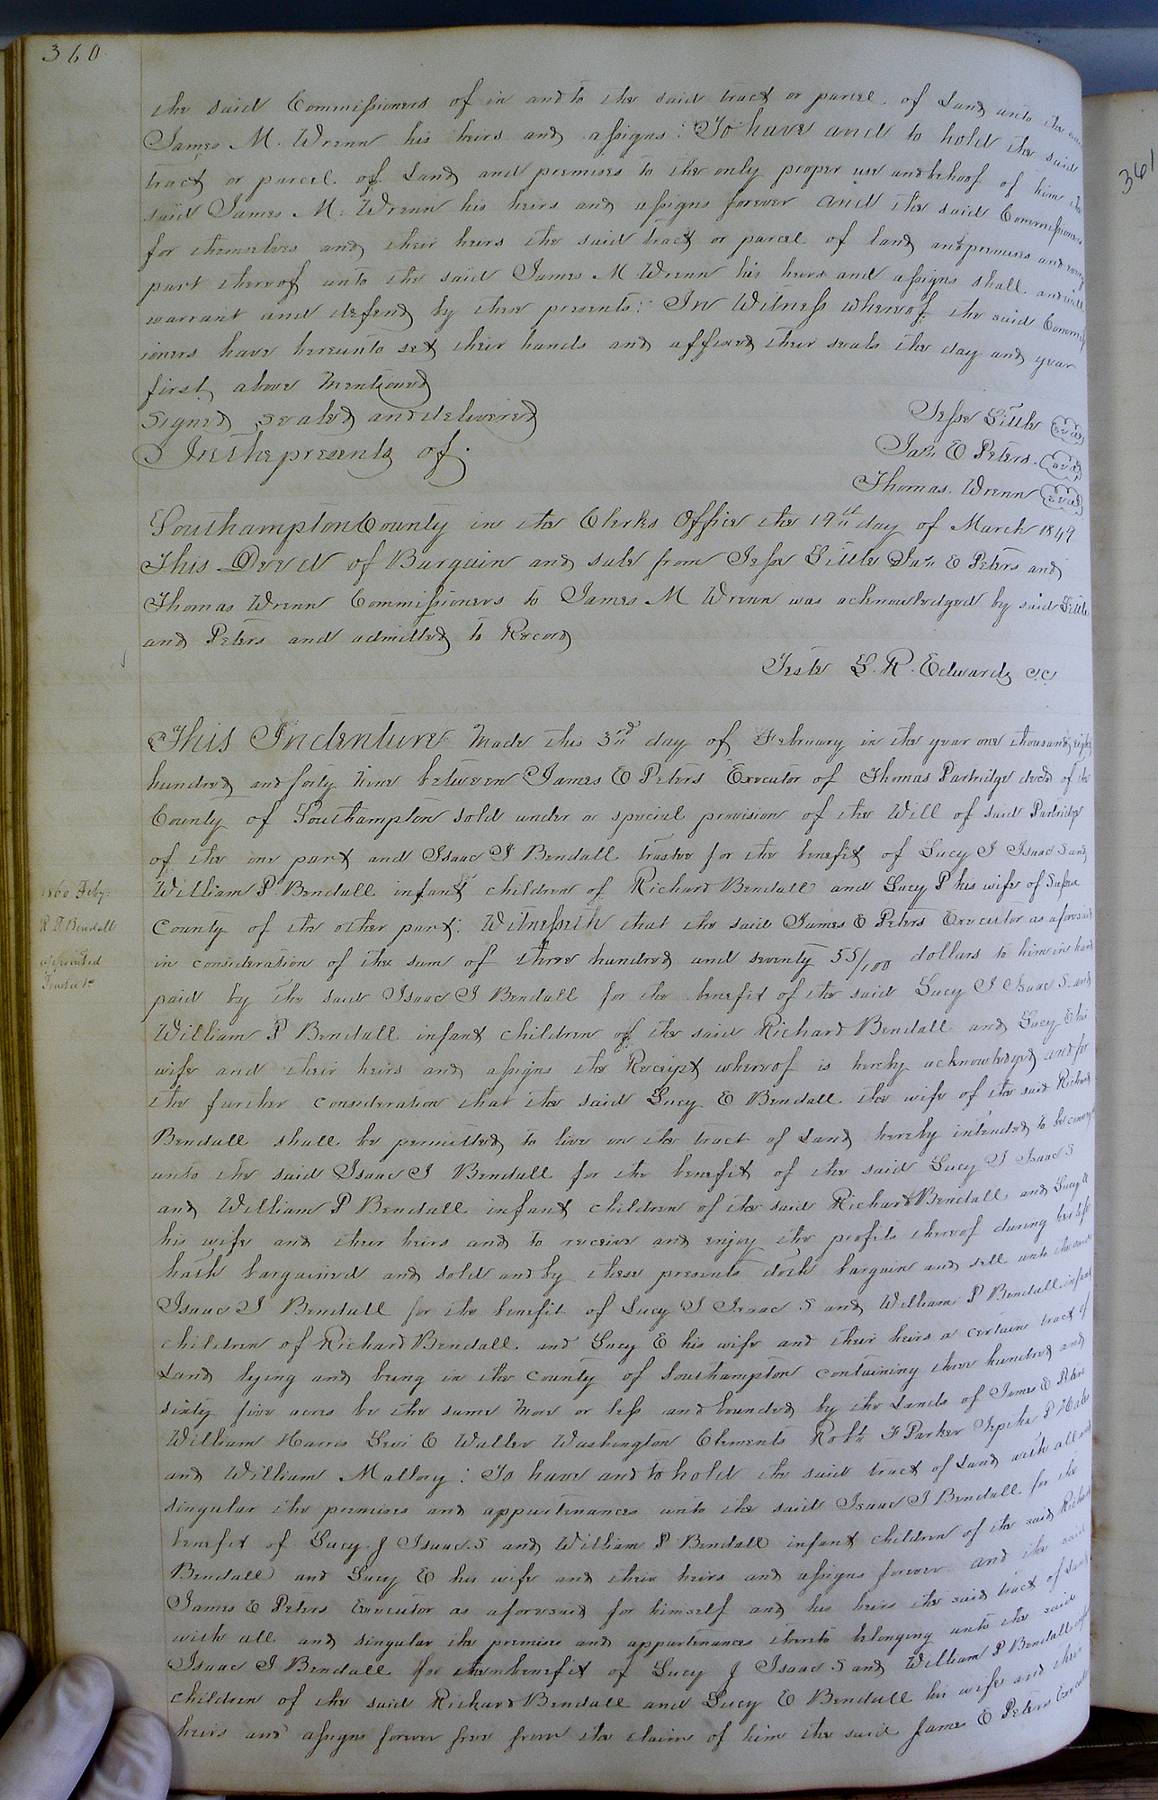 360
the said Commissioners of in and to the said tract or parcel of Land unto the
James M. Wrenn his heirs and assigns: To have and to hold the said
tract or parcel of Land and premises to the only proper use and behoof of him the
said James M. Wrenn his heirs and assigns forever and the said Commissioners
for themselves and their heirs the said tract or parcel of land and premises and every
part thereof unto the said James M Wrenn his heirs and assigns shall and will
warrant and defend by these presents: In Witness whereof the said Commiss
ioners have hereunto set their hands and affixed their seals the day and year
first above mentioned
Signed sealed and delivered
In the presents of
Jesse Little seal
Jas. E Peters seal
Thomas Wrenn seal
Southampton County in the Clerks Office the 19th day of March 1849
This Deed of Bargain and sale from Jesse Little Jas. E Peters and
Thomas Wrenn Commissioners to James M Wrenn was acknowledged by said Little
and Peters and admitted to Record
Teste L. R. Edwards cc
This Indenture Made this 3rd day of February in the year one thousand eight
hundred and forty nine between James E Peters Executor of Thomas Partridge decd of the
County of Southampton sold under a special provision of the Will of said Partridge
of the one part and Isaac J Bendall trustee for the benefit of Lucy J Isaac S and
William P Bendall infant children of Richard Bendall and Lucy P his wife of
County of the other part: Witnesseth that the said James E Peters Executor as aforesaid
in consideration of the sum of three hundred and seventy 55/100 dollars to him in hand
paid by the said Isaac J Bendall for the benefit of the said Lucy J Isaac S and
William P Bendall infant children of the said Richard Bendall and Lucy E his
wife and their heirs and assigns the Receipt whereof is hereby acknowledged and for
the further consideration that the said Lucy E Bendall the wife of the said Richard
Bendall shall be permitted to live on the tract of Land hereby intended to be
unto the said Isaac J Bendall for the benefit of the said Lucy J Isaac S
and William P Bendall infant children of the said Richard Bendall and Lucy E
his wife and their heirs and to receive and enjoy the profits thereof during her life
hath bargained and sold and by these presents doth bargain and sell unto the said
Isaac J Bendall for the benefit of Lucy J Isaac S and William P Bendall infant
children of Richard Bendall and Lucy E his wife and their heirs a certain tract of
Land lying and being in the County of Southampton containing three hundred and
sixty five acres be the same more or less and bounded by the Lands of James E Peters
William Harris Levi E Waller Washington Clements Robt. F Parker P
and William Mallory: To have and to hold the said tract of Land with all and
singular the premises and appurtenances unto the said Isaac J Bendall for the
benefit of Lucy J Isaac S and William P Bendall infant children of the said Richard
Bendall and Lucy E his wife and their heirs and assigns forever and the said
James E Peters Executor as aforesaid for himself and his heirs the said tract of Land
with all and singular the premises and appurtenances thereto belonging unto the said
Isaac J Bendall for the benefit of Lucy J Isaac S and William P Bendall
children of the said Richard Bendall and Lucy E Bendall his wife and their
heirs and assigns forever free from the claim of him the said James E Peters
1860 Feby.
R. D. Bendall
appointed
Trustee
361